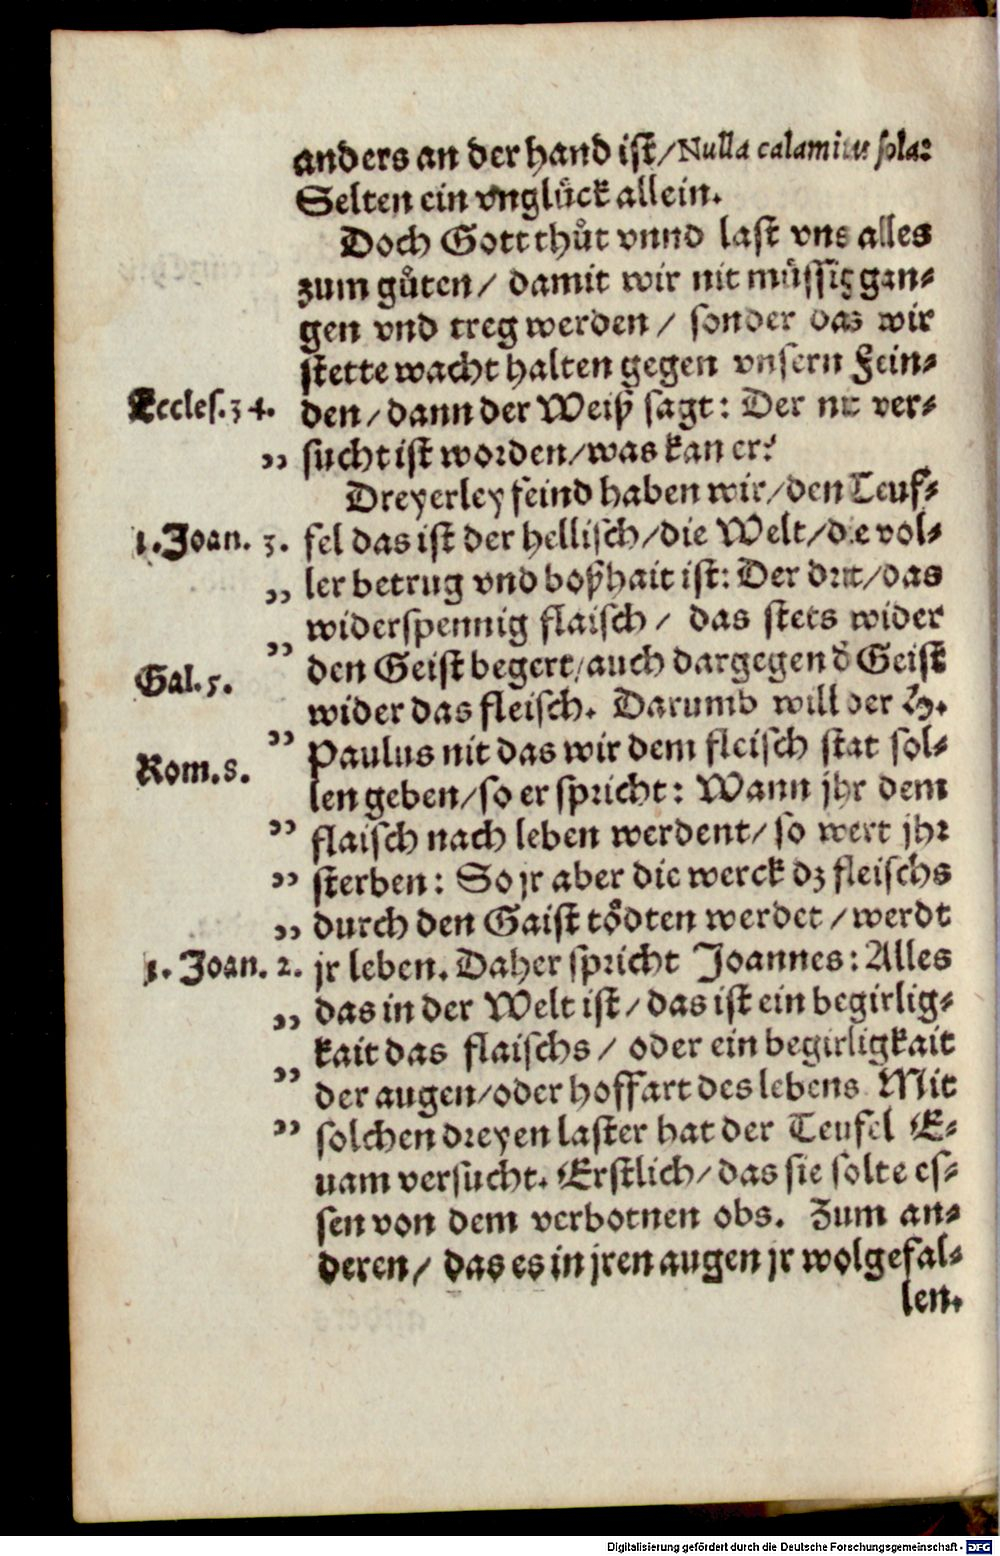 anders an der hand ist/Nulla calamitas sola:
Selten ein vnglück allein.
Doch Gott thůt vnnd last vns alles
zum gůten/ damit wir nit müssig gan-
gen vnd treg werden / sonder das wir
stette wacht halten gegen vnsern Fein-
Eccles. 34. den/dann der Weiß sagt: Der nit ver-
„ sucht ist worden/was kan er?
Dreyerley feind haben wir/den Teuf-
1. Joan. 3. fel das ist der hellisch/die Welt/die vol-
„ ler betrug vnd boßhait ist: Der drit/das
widerspennig flaisch/ das stets wider
„ den Geist begert/auch dargegen d̓ Geist
Gal. 5. wider das fleisch. Darumb will der H.
„ Paulus nit das wir dem fleisch stat sol-
Rom. 8. len geben/so er spricht: Wann jhr dem
„ flaisch nach leben werdent/so wert jhr
„ sterben: So jr aber die werck dz fleischs
„ durch den Gaist tödten werdet/werdt
1. Joan. 2. jr leben. Daher spricht Joannes: Alles
„ das in der Welt ist/das ist ein begirlig-
kait das flaischs/ oder ein begirligkait
„ der augen/oder hoffart des lebens. Mit
„ solchen dreyen laster hat der Teufel E-
uam versucht. Erstlich/das sie solte es-
sen von dem verbotnen obs. Zum an-
deren/ das es in jren augen jr wolgefal-
len.
Digitalisierung gefördert durch die Deutsche Forschungsgemeinschaft - DFG